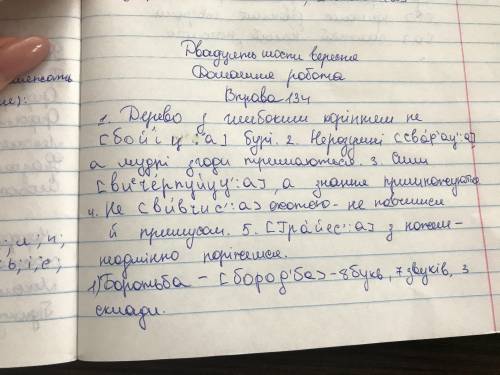 Двадцять шосте вересня
Домашня робота
Вправа 134
1. Дерево з глибоким корінням не
[бойіц':а] бурі. 2. Нерозумні [свар'ац':а]
а мудрі згоди тримаються. 3. Сили
[виᵉче́рпуйуц':а], а знання примножуються
4. Не [ви́вчис':а] охотою - не навчишся
й примусом. 5. [Гра́йес':а] з ножем -
неодмінно поріжешся.
1) Боротьба - [бород'ба] - 8 букв, 7 звуків, 3
склади.
мекать
е):
; и; н;
ь; і; е;